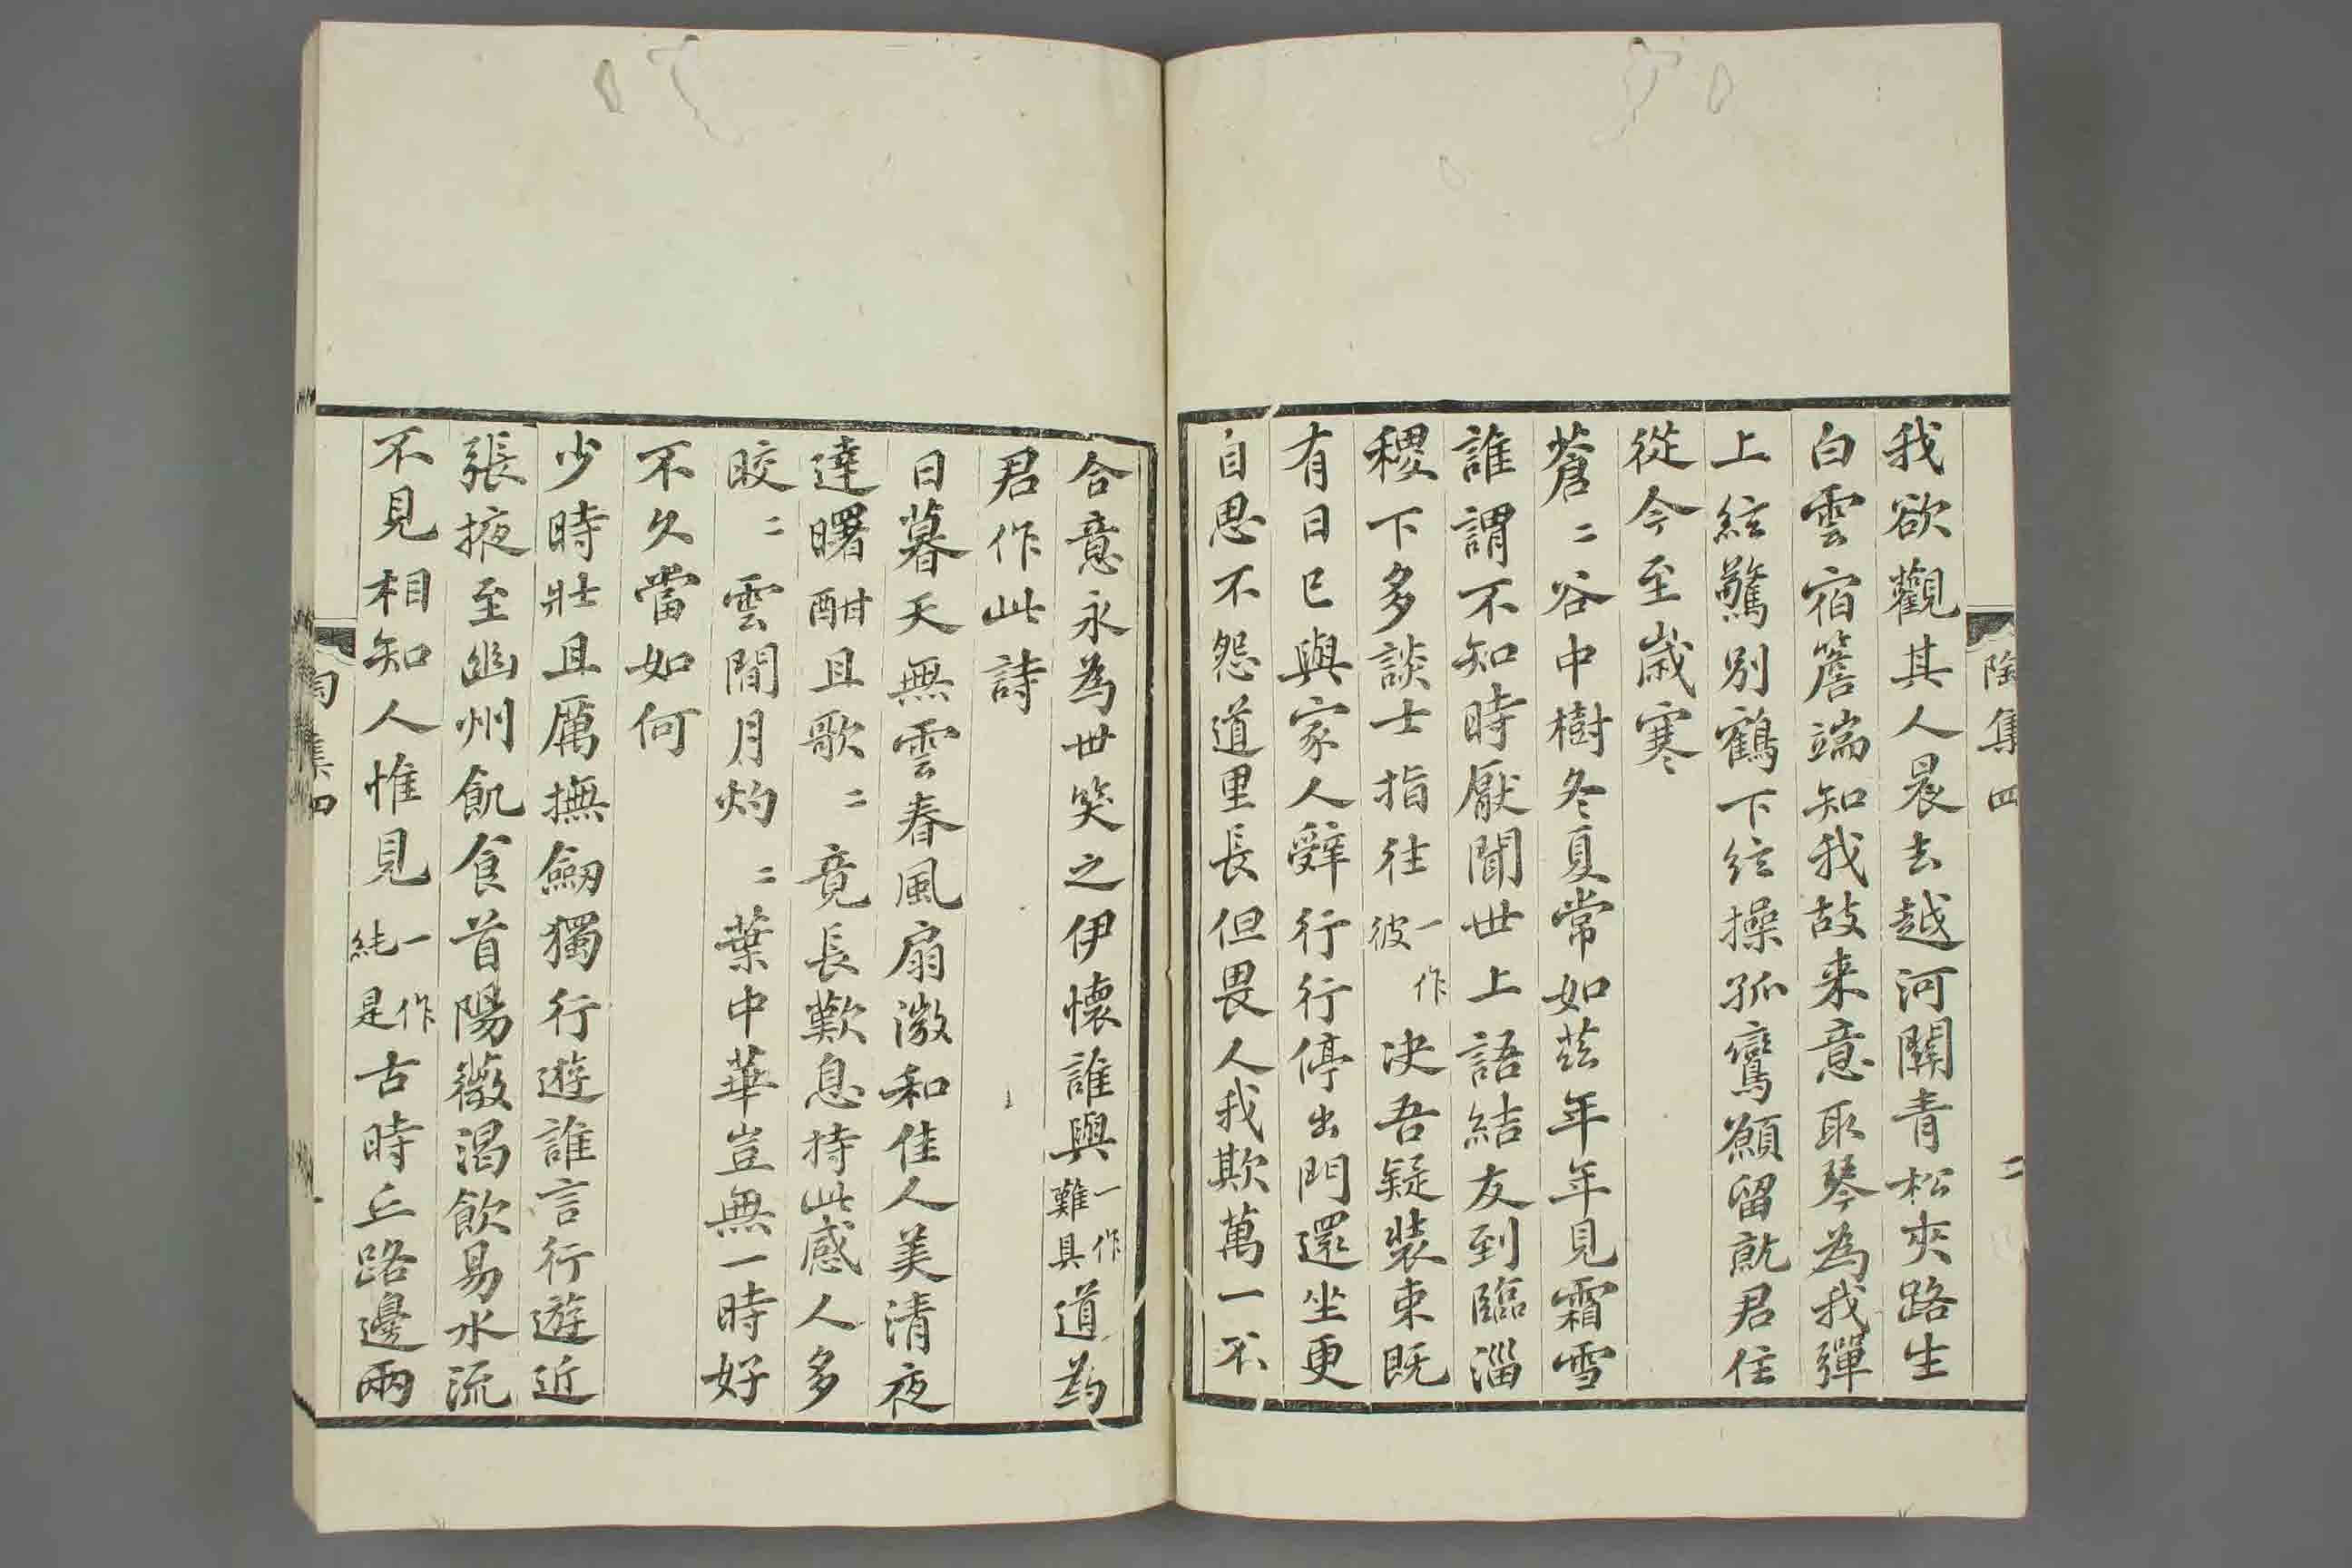 陶集四 二
我欲觀其人晨去越河關青松夾路生
白雲宿簷端知我故来意取琴為我彈
上絃驚別鶴下絃操孤鸞願留就君住
從今至歲寒
蒼〻谷中樹冬夏常如茲年年見霜雪
誰謂不知時厭聞世上語結友到臨淄
稷下多談士指往一作彼决吾疑裝束既
有日已與家人辭行行停出門還坐更
自思不怨道里長但畏人我欺萬一不
合意永為世笑之伊懷誰與一作難具道為
君作此詩
日暮天無雲春風扇微和佳人美清夜
達曙酣且歌〻竟長歎息持此感人多
皎〻雲間月灼〻葉中華豈無一時好
不久當如何
少時壯且厲撫劒獨行遊誰言行遊近
張掖至幽州飢食首陽薇渴飲易水流
不見相知人惟見一作純是古時丘路邊兩
陶集四